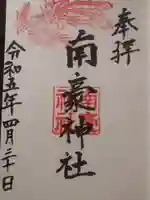 奉拝
南豪神社
令和五年四月二十日